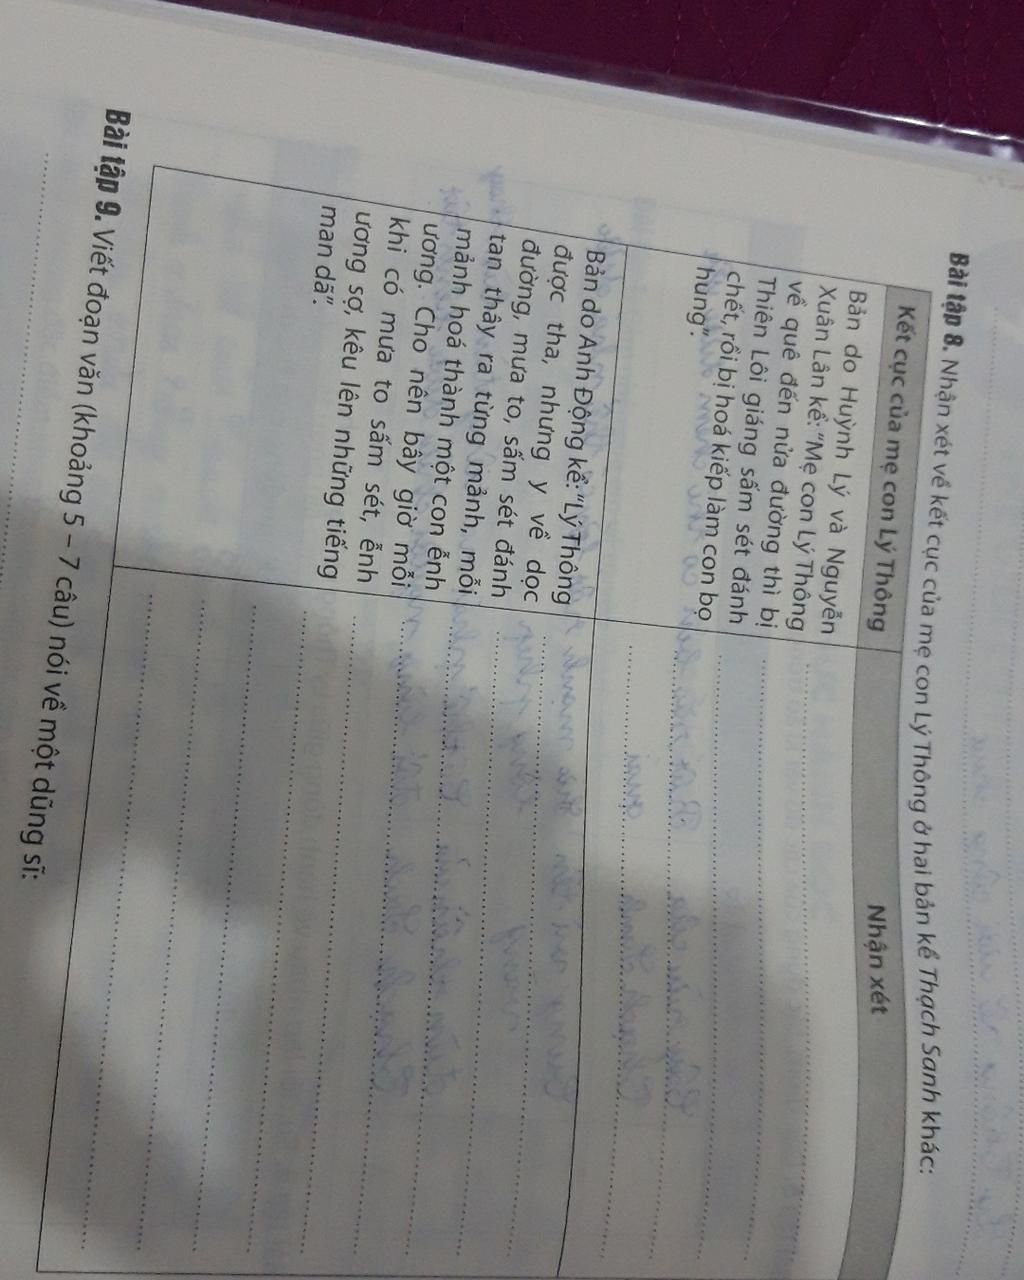 Bài tập 8. Nhận xét về kết cục của mẹ con Lý Thông ở hai bản kể Thạch Sanh khác:
Kết cục của mẹ con Lý Thông
Nhận xét
Bản do Huỳnh Lý và Nguyễn
Xuân Lân kể: "Mẹ con Lý Thông
về quê đến nửa đường thì bị
Thiên Lôi giáng sấm sét đánh
chết, rồi bị hoá kiếp làm con bọ
hung".
Bản do Anh Động kể: "Lý Thông
được tha, nhưng y về dọc
đường, mưa to, sấm sét đánh
tan thây ra từng mảnh, mỗi
mảnh hoá thành một con ễnh
ương. Cho nên bây giờ mỗi
khi có mưa to sấm sét, ễnh
ương sợ, kêu lên những tiếng
man dã".
Bài tập 9. Viết đoạn văn (khoảng 5 – 7 câu) nói về một dũng sĩ: